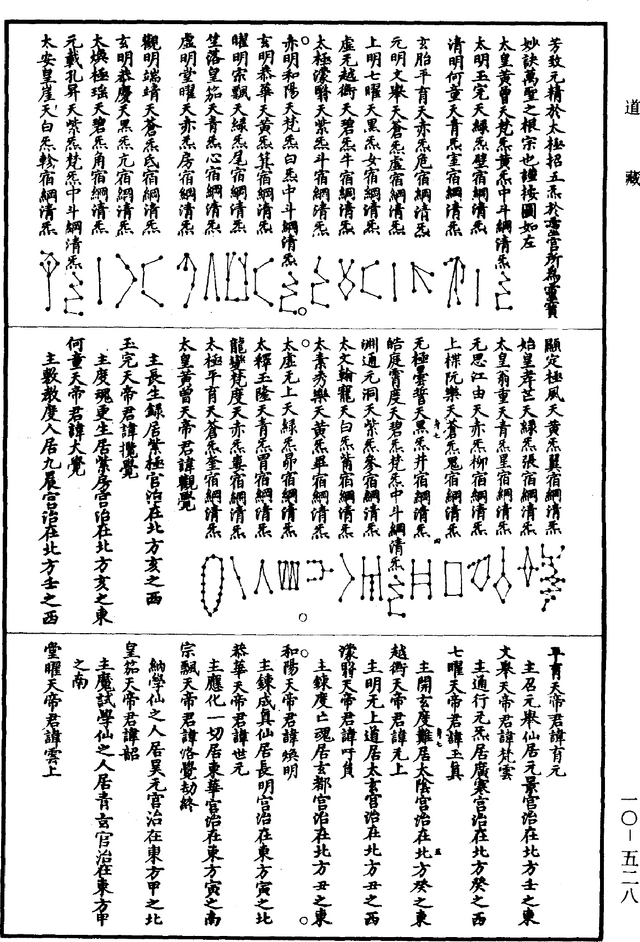 道藏
芳敖元精於太極招五炁於靈宮所為靈寶
妙訣萬聖之根宗也謹按圖如左
太皇黃曾天梵炁黃炁中斗綱清炁
太明玉完天綠炁壁宿綱清炁
清明何童天青炁室宿綱清炁
玄胎平育天赤炁危宿綱清炁
元明文舉天蒼炁虛宿綱清炁
上明七曜天黑炁女宿綱清炁
虛无越衡天碧炁牛宿綱清炁
太極濛翳天紫炁斗宿綱清炁
赤明和陽天梵炁白炁中斗綱清炁
玄明恭華天黃炁箕宿綱清炁
曜明宗飄天綠炁尾宿綱清炁
竺落皇笳天青炁心宿綱清炁
虛明堂曜天赤炁房宿綱清炁
觀明端靖天蒼炁氐宿綱清炁
玄明恭慶天黑炁亢宿綱清炁
太煥極瑤天碧炁角宿綱清炁
元載孔昇天紫炁梵炁中斗綱清炁
太安皇崖天白炁軫宿綱清炁
顯定極風天黃炁翼宿綱清炁
始皇孝芒天綠炁張宿綱清炁
太皇翁重天青炁星宿綱清炁
元思江由天赤炁柳宿綱清炁
上楪阮樂天蒼炁鬼宿綱清炁
无極曇誓天黑炁井宿綱清炁
皓庭霄度天碧炁梵炁中斗綱清炁
淵通元洞天紫炁參宿綱清炁
太文翰寵天白炁觜宿綱清炁
太素秀樂天黃炁畢宿綱清炁
太虛无上天綠炁昴宿綱清炁
太釋玉隆天青炁胃宿綱清炁
龍變梵度天赤炁婁宿綱清炁
太極平育天蒼炁奎宿綱清炁
太皇黃曾天帝君諱觀覺
主長生錄居紫極宮治在北方亥之西
玉完天帝君諱攬覺
主度魂更生居紫房宮治在北方亥之東
何童天帝君諱大覺
主數教度人居九晨宮治在北方壬之西
平育天帝君諱育元
主召元舉仙居元景宮治在北方壬之東
文舉天帝君諱梵雲
主通行元炁居廣寒宮治在北方癸之西
七曜天帝君諱玉真
主開玄度難居太陰宮治在北方癸之東
越衡天帝君諱元上
主明元上道居太玄宮治在北方丑之西
濛翳天帝君諱吁負
主鍊度亡魂居玄都宮治在北方丑之東
和陽天帝君諱煥明
主鍊成真仙居長明宮治在東方寅之北
恭華天帝君諱世元
主應化一切居東華宮治在東方寅之南
宗飄天帝君諱恪覺劫終
納學仙之人居昊元宮治在東方甲之北
皇笳天帝君諱韶
主魔試學仙之人居青玄宮治在東方甲
之南
堂曜天帝君諱雲上
一〇-五二八